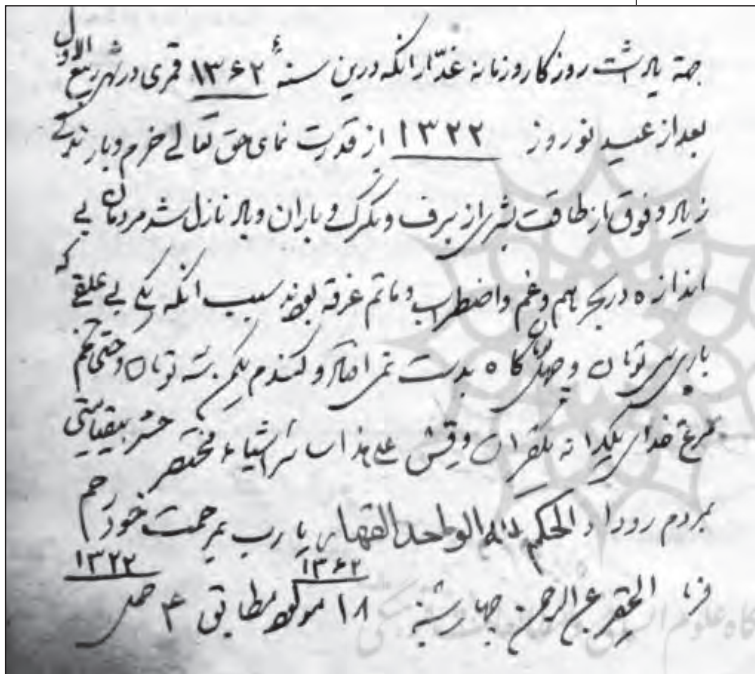 جهة یادداشت روزگار و زمانه غدّار آنکه درین سنهٔ ۱۳۶۲ قمری در شهر ربیع الاول
بعد از عید نوروز ۱۳۲۲ از قدرت نمای حق تعالے خرم و بارندگے
زیاد و فوق از طاقت بشری از برف و تگرگ و باران و باد نازل شد مردمان بے
اندازه در بحر هم و غم و اضطراب و ماتم غرقه بودند سبب آنکه یکے بے علیقے که
باری سی تومان و چهل تومان کاه بدست نمی افتاد و گندم یکمن سه تومان و حتی تخم
مرغ خدای یکدانه یکقران و قِس علے هذا سائر اشیاء مختصر حشر بیقیامتی
بمردم روداد الحکم لله الواحد القهار یا رب بمرحمت خود رحم
فرما الحقیر عبدالرحمن چهارشنبه ۱۸ مولود ۱۳۶۲ مطابق ۴ حمل ۱۳۲۲